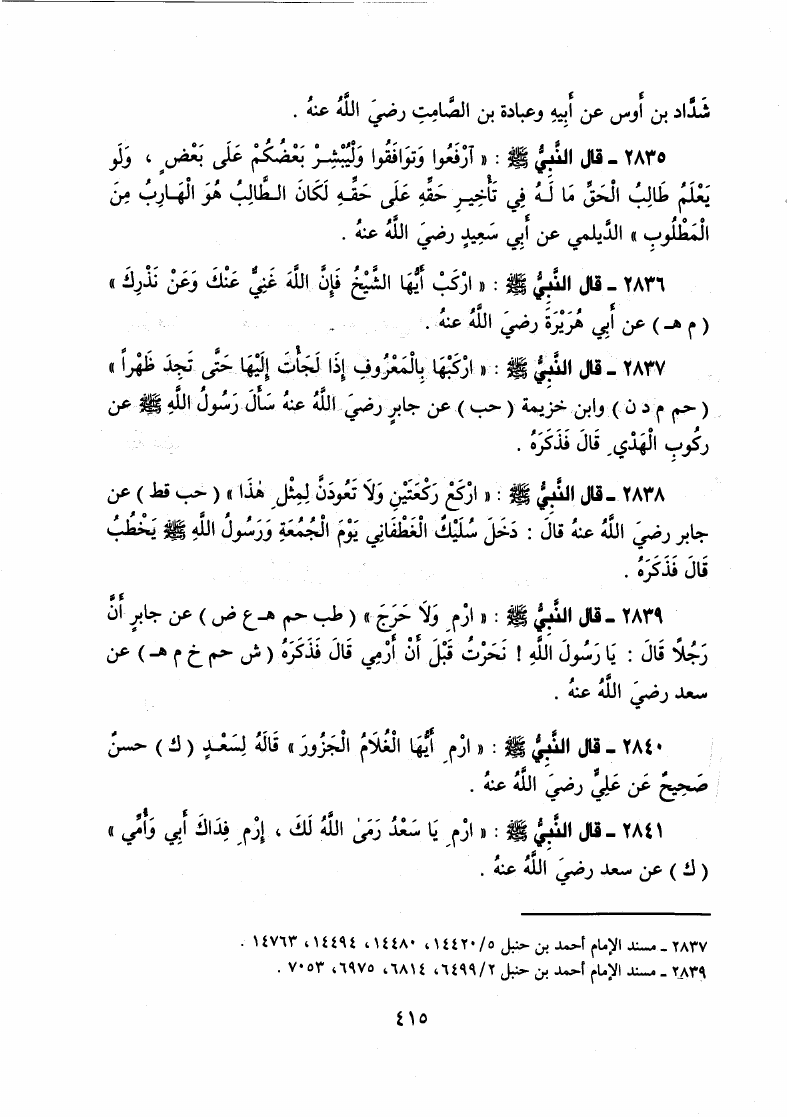 شَدَّاد بن أَوس عن أَبيهِ وعبادة بن الصَّامِتِ رضيَ اللَّهُ عنهُ .
٢٨٣٥ ـ قال النَّبِيُّ ﷺ : « آرْفَعُوا وَتَوَافَقُوا وَلْيُبْشِرْ بَعْضُكُمْ عَلَى بَعْضٍ ، وَلَو
يَعْلَمُ طَالِبُ الْحَقِّ مَا لَهُ فِي تَأْخِيرِ حَقِّهِ عَلَى حَقِّهِ لَكَانَ الطَّالِبُ هُوَ الْهَارِبُ مِنَ
الْمَطْلُوبِ » الدَّيلمي عن أَبي سَعِيدٍ رضيَ اللَّهُ عنهُ .
٢٨٣٦ ـ قال النَّبِيُّ ﷺ : « ارْكَبْ أَيُّهَا الشَّيْخُ فَإِنَّ اللَّهَ غَنِيٌّ عَنْكَ وَعَنْ نَذْرِكَ »
( م هـ ) عن أَبِي هُرَيْرَةَ رضيَ اللَّهُ عنهُ .
٢٨٣٧ ـ قال النَّبِيُّ ﷺ : « ارْكَبْهَا بِالْمَعْرُوفِ إِذَا لَجَأْتَ إِلَيْهَا حَتَّى تَجِدَ ظَهْراً »
( حم م د ن ) وابن خزيمة ( حب ) عن جابرٍ رضيَ اللَّهُ عنهُ سَأَلَ رَسُولُ اللَّهِ ﷺ عن
ركُوبِ الْهَدْيِ قَالَ فَذَكَرَهُ .
٢٨٣٨ ـ قال النَّبِيُّ ﷺ : « ارْكَعْ رَكْعَتَيْنِ وَلَا تَعُودَنَّ لِمِثْلِ هٰذَا » ( حب قط ) عن
جابر رضيَ اللَّهُ عنهُ قالَ : دَخَلَ سُلَيْكُ الْغَطَفَانِي يَوْمَ الْجُمُعَةِ وَرَسُولُ اللَّهِ ﷺ يَخْطُبُ
قَالَ فَذَكَرَهُ .
٢٨٣٩ ـ قال النَّبِيُّ ﷺ : « ارْمِ وَلَا حَرَجَ » ( طب حم هـ ع ض ) عن جابرٍ أَنَّ
رَجُلًا قَالَ : يَا رَسُولَ اللَّهِ ! نَحَرْتُ قَبْلَ أَنْ أَرْمِي قَالَ فَذَكَرَهُ ( ش حم خ م هـ ) عن
سعد رضيَ اللَّهُ عنهُ .
٢٨٤٠ ـ قال النَّبِيُّ ﷺ : « ارْمِ أَيُّهَا الْغُلَامُ الْجَزُورَ » قَالَهُ لِسَعْدٍ ( ك ) حسنٌ
صَحِيحٌ عَن عَلِيٍّ رضيَ اللَّهُ عنهُ .
٢٨٤١ ـ قال النَّبِيُّ ﷺ : « ارْمِ يَا سَعْدُ رَمَى اللَّهُ لَكَ ، إِرْمِ فِدَاكَ أَبِي وَأُمِّي »
( ك ) عن سعد رضيَ اللَّهُ عنهُ .
٢٨٣٧ ـ مسند الإمام أحمد بن حنبل ١٤٤٢٠/٥ ، ١٤٤٨٠ ، ١٤٤٩٤ ، ١٤٧٦٣ .
٢٨٣٩ ـ مسند الإمام أحمد بن حنبل ٦٤٩٩/٢ ، ٦٨١٤ ، ٦٩٧٥ ، ٧٠٥٣ .
٤١٥